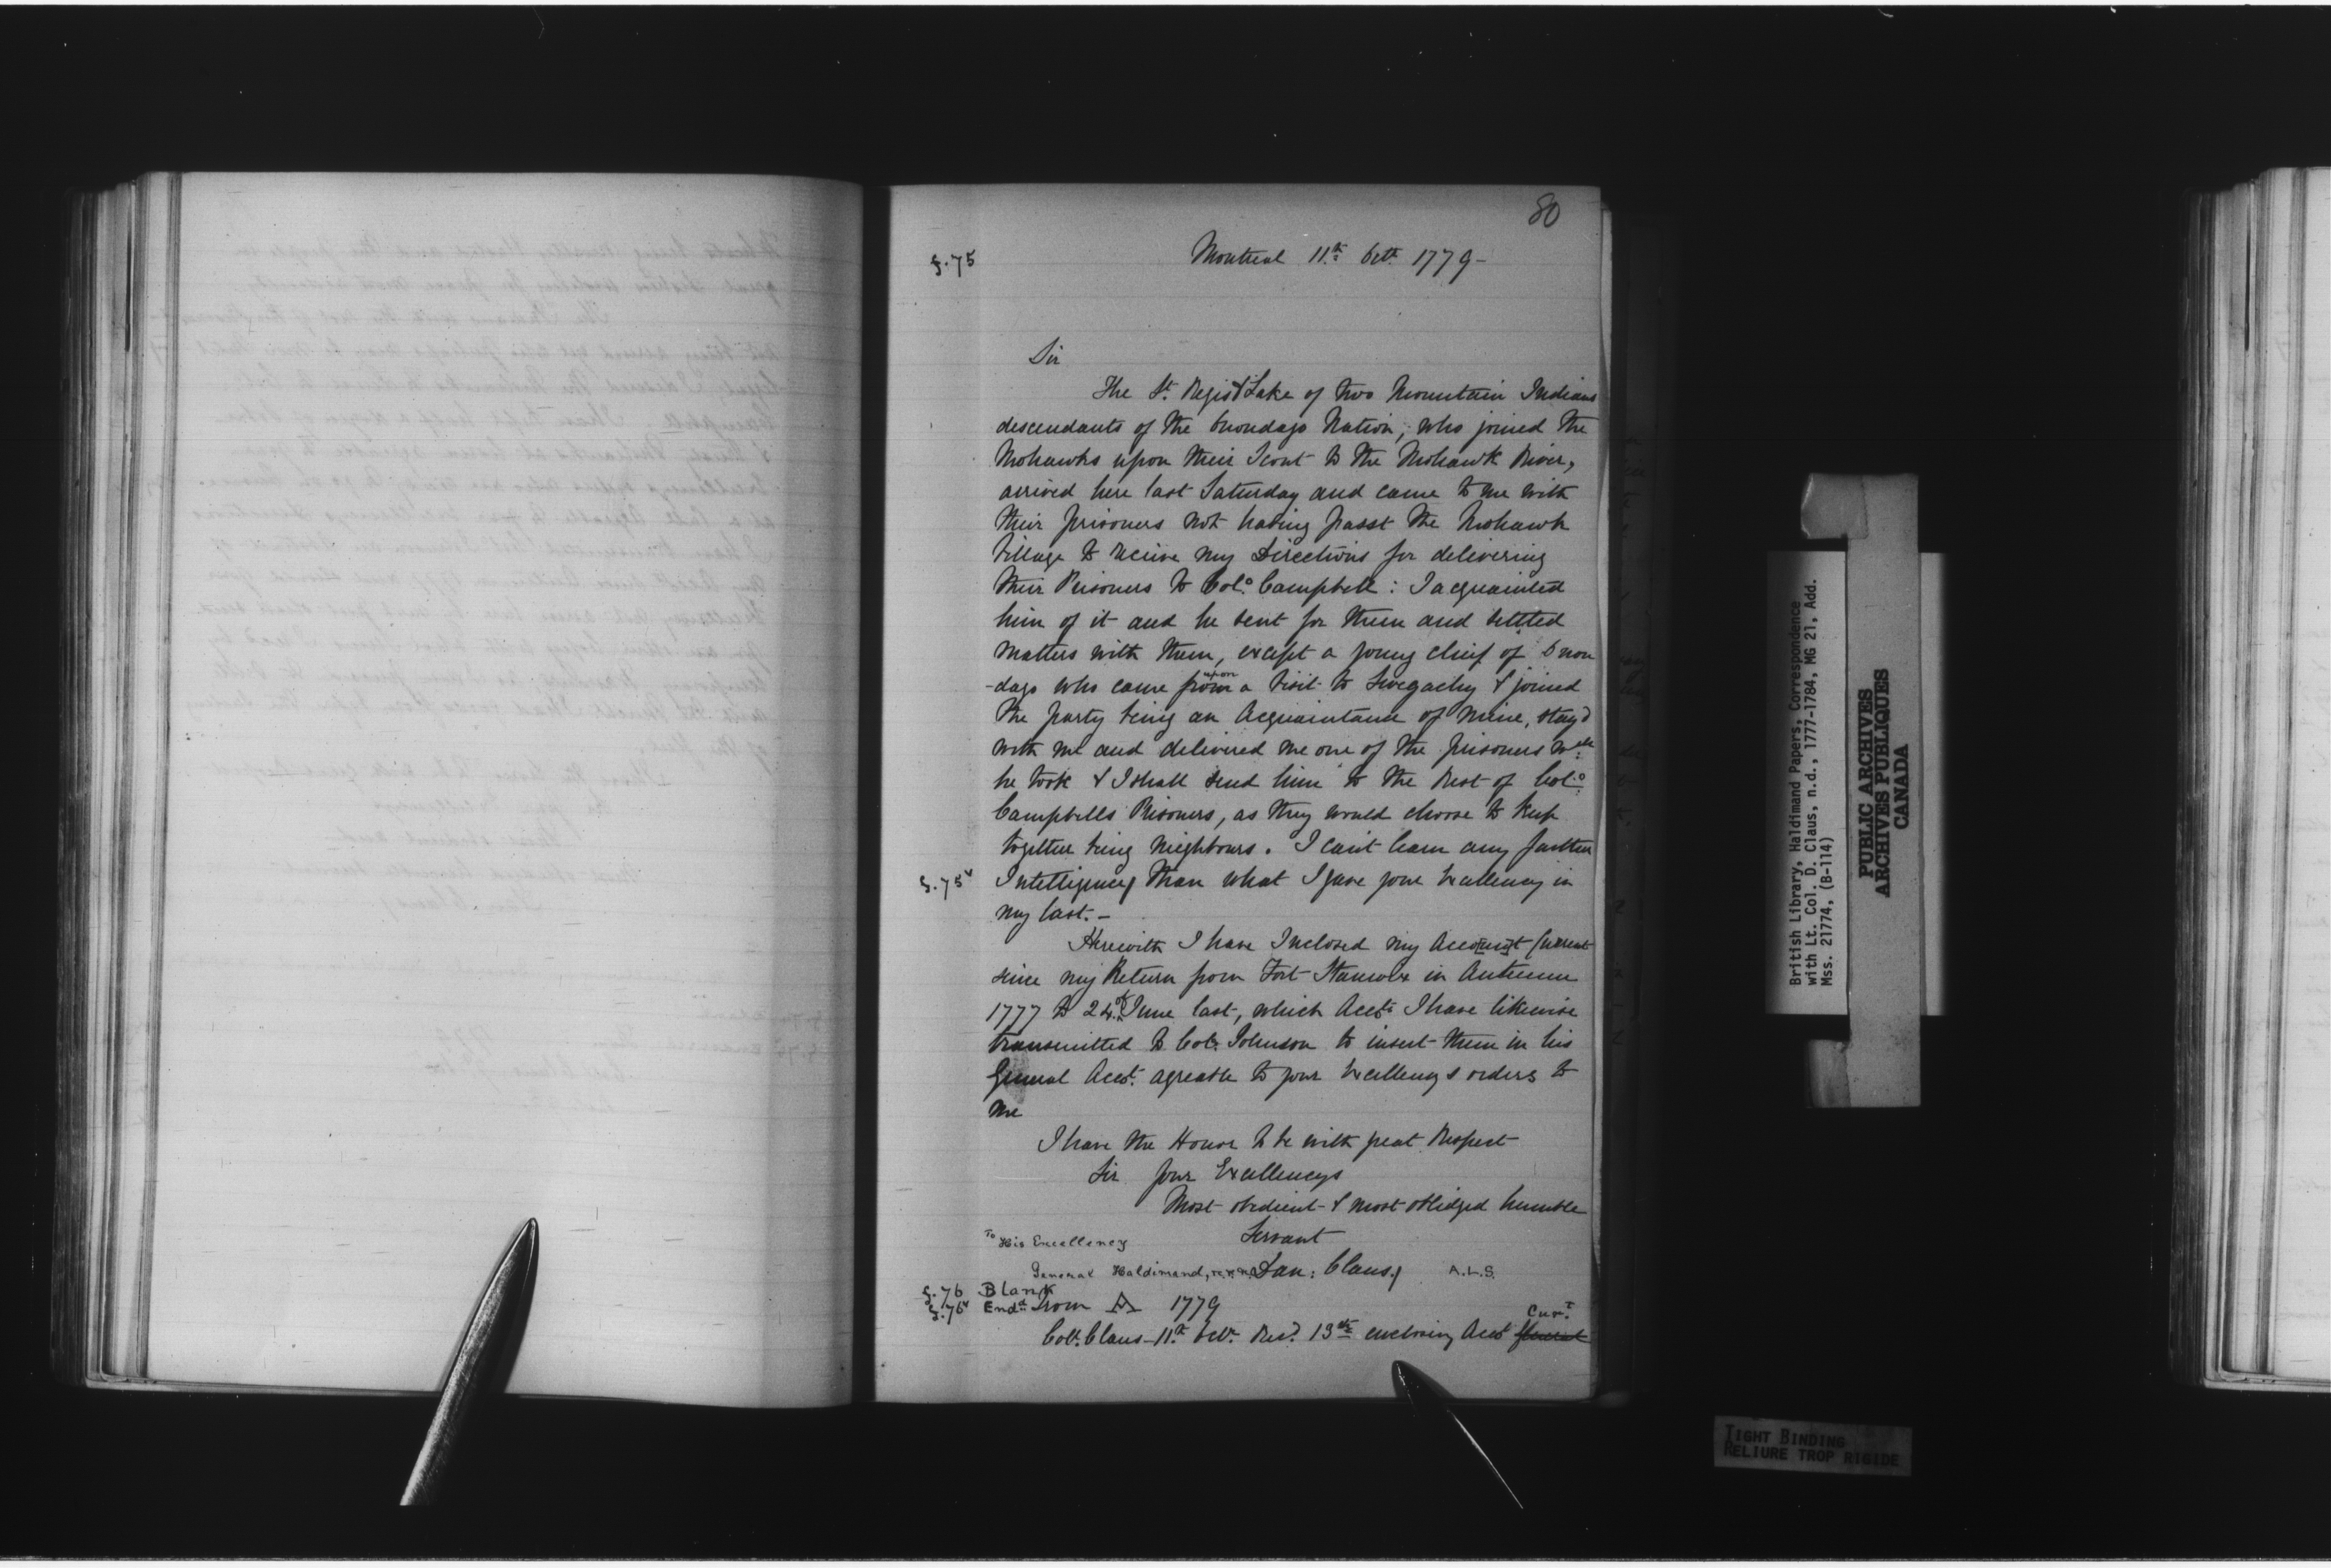 80
f.75
Montreal 11th Octr 1779-
Sir
The St. Regis & Lake of two Mountain Indians
descendants of the Onondago Nation, who joined the
Mohawks upon their Scout to the Mohawk River,
arrived here last Saturday and came to me with
their prisoners not having passt the Mohawk
Village to receive my Directions for delivering
their Prisoners to Colo. Campbell: I acquainted
him of it and he sent for them and settled
matters with them, except a young chief of Onon
-dago who came from upon a Visit to Swegachy & joined
the party being an Acquaintance of mine, stay'd
with me and delivered me one of the prisoners wch
he took & I shall send him to the Rest of Colo.
Campbells Prisoners, as they would choose to keep
together being Neighbours. I cant learn any further
f.75v
Intelligence than what I gave your Excellency in
my last.-
Herewith I have Inclosed my Acco[un]t Current
since my Return from Fort Stanwix in Autumn
1777 to 24th June last, which Accts I have likewise
transmitted to Col. Johnson to insert them in his
General Acct. agreable to your Excellencys orders to
me
I have the Honor to be with great Respect
Sir your Excellencys
Most obedient & most oblidged humble
Servant
To His Excellency
General Haldimand,
Dan: Claus.
A.L.S.
f.76 Blank
f.76v Endd. From A 1779
Coll. Claus - 11th Octr. Recd. 13th enclosing Acct General Curt.
British Library, Haldimand Papers, Correspondence
with Lt. Col. D. Claus, n.d., 1777-1784, MG 21, Add.
Mss. 21774, (B-114)
PUBLIC ARCHIVES
ARCHIVES PUBLIQUES
CANADA
TIGHT BINDING
RELIURE TROP RIGIDE